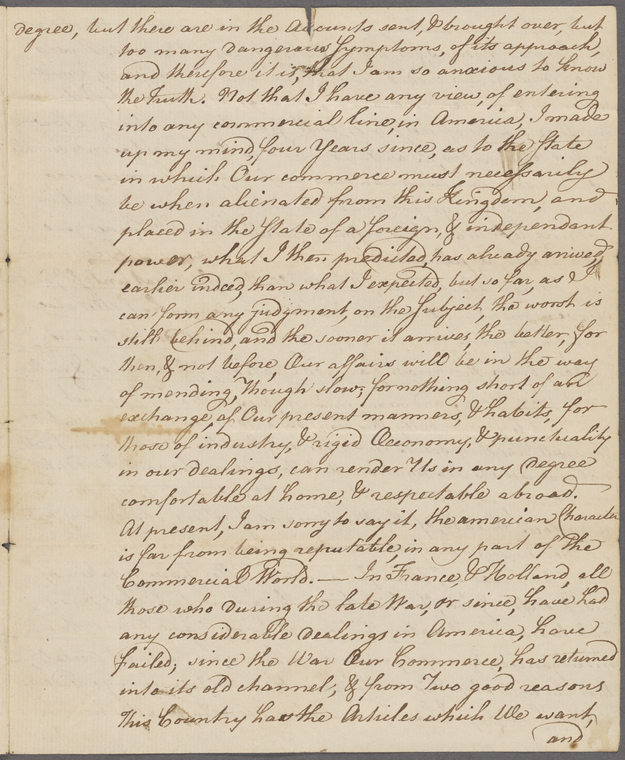 degree, but there are in the Accounts sent, & brought over, but
too many dangerous Symptoms, of its approach,
and therefore it is, that I am so anxious to know
the Truth. Not that I have any view, of entering
into any commercial line, in America, I made
up my mind, four Years since, as to the State
in which Our commerce must necessarily
be when alienated from this Kingdom, and
placed in the State of a foreign, & independant
power, what I then predicted, has already arrived,
earlier indeed, than what I expected, but so far as I
can form any judgment, on the Subject, the worst is
still behind, and the sooner it arrives, the better, for
then, & not before, Our affairs will be in the way
of mending, Though slow; for nothing short of an
exchange, of Our present manners, & habits, for
those of industry, & rigid Œconomy, & punctuality
in our dealings, can render Us in any degree
comfortable at home, & respectable abroad.
At present, I am sorry to say it, the american Character
is far from being reputable, in any part of the
Commercial World. — In France, & Holland, all
those who during the late War, or since, have had
any considerable dealings in America, have
failed; since the War Our Commerce, has returned
into its old channel, & from Two good reasons
This Country has the Articles which We want,
and